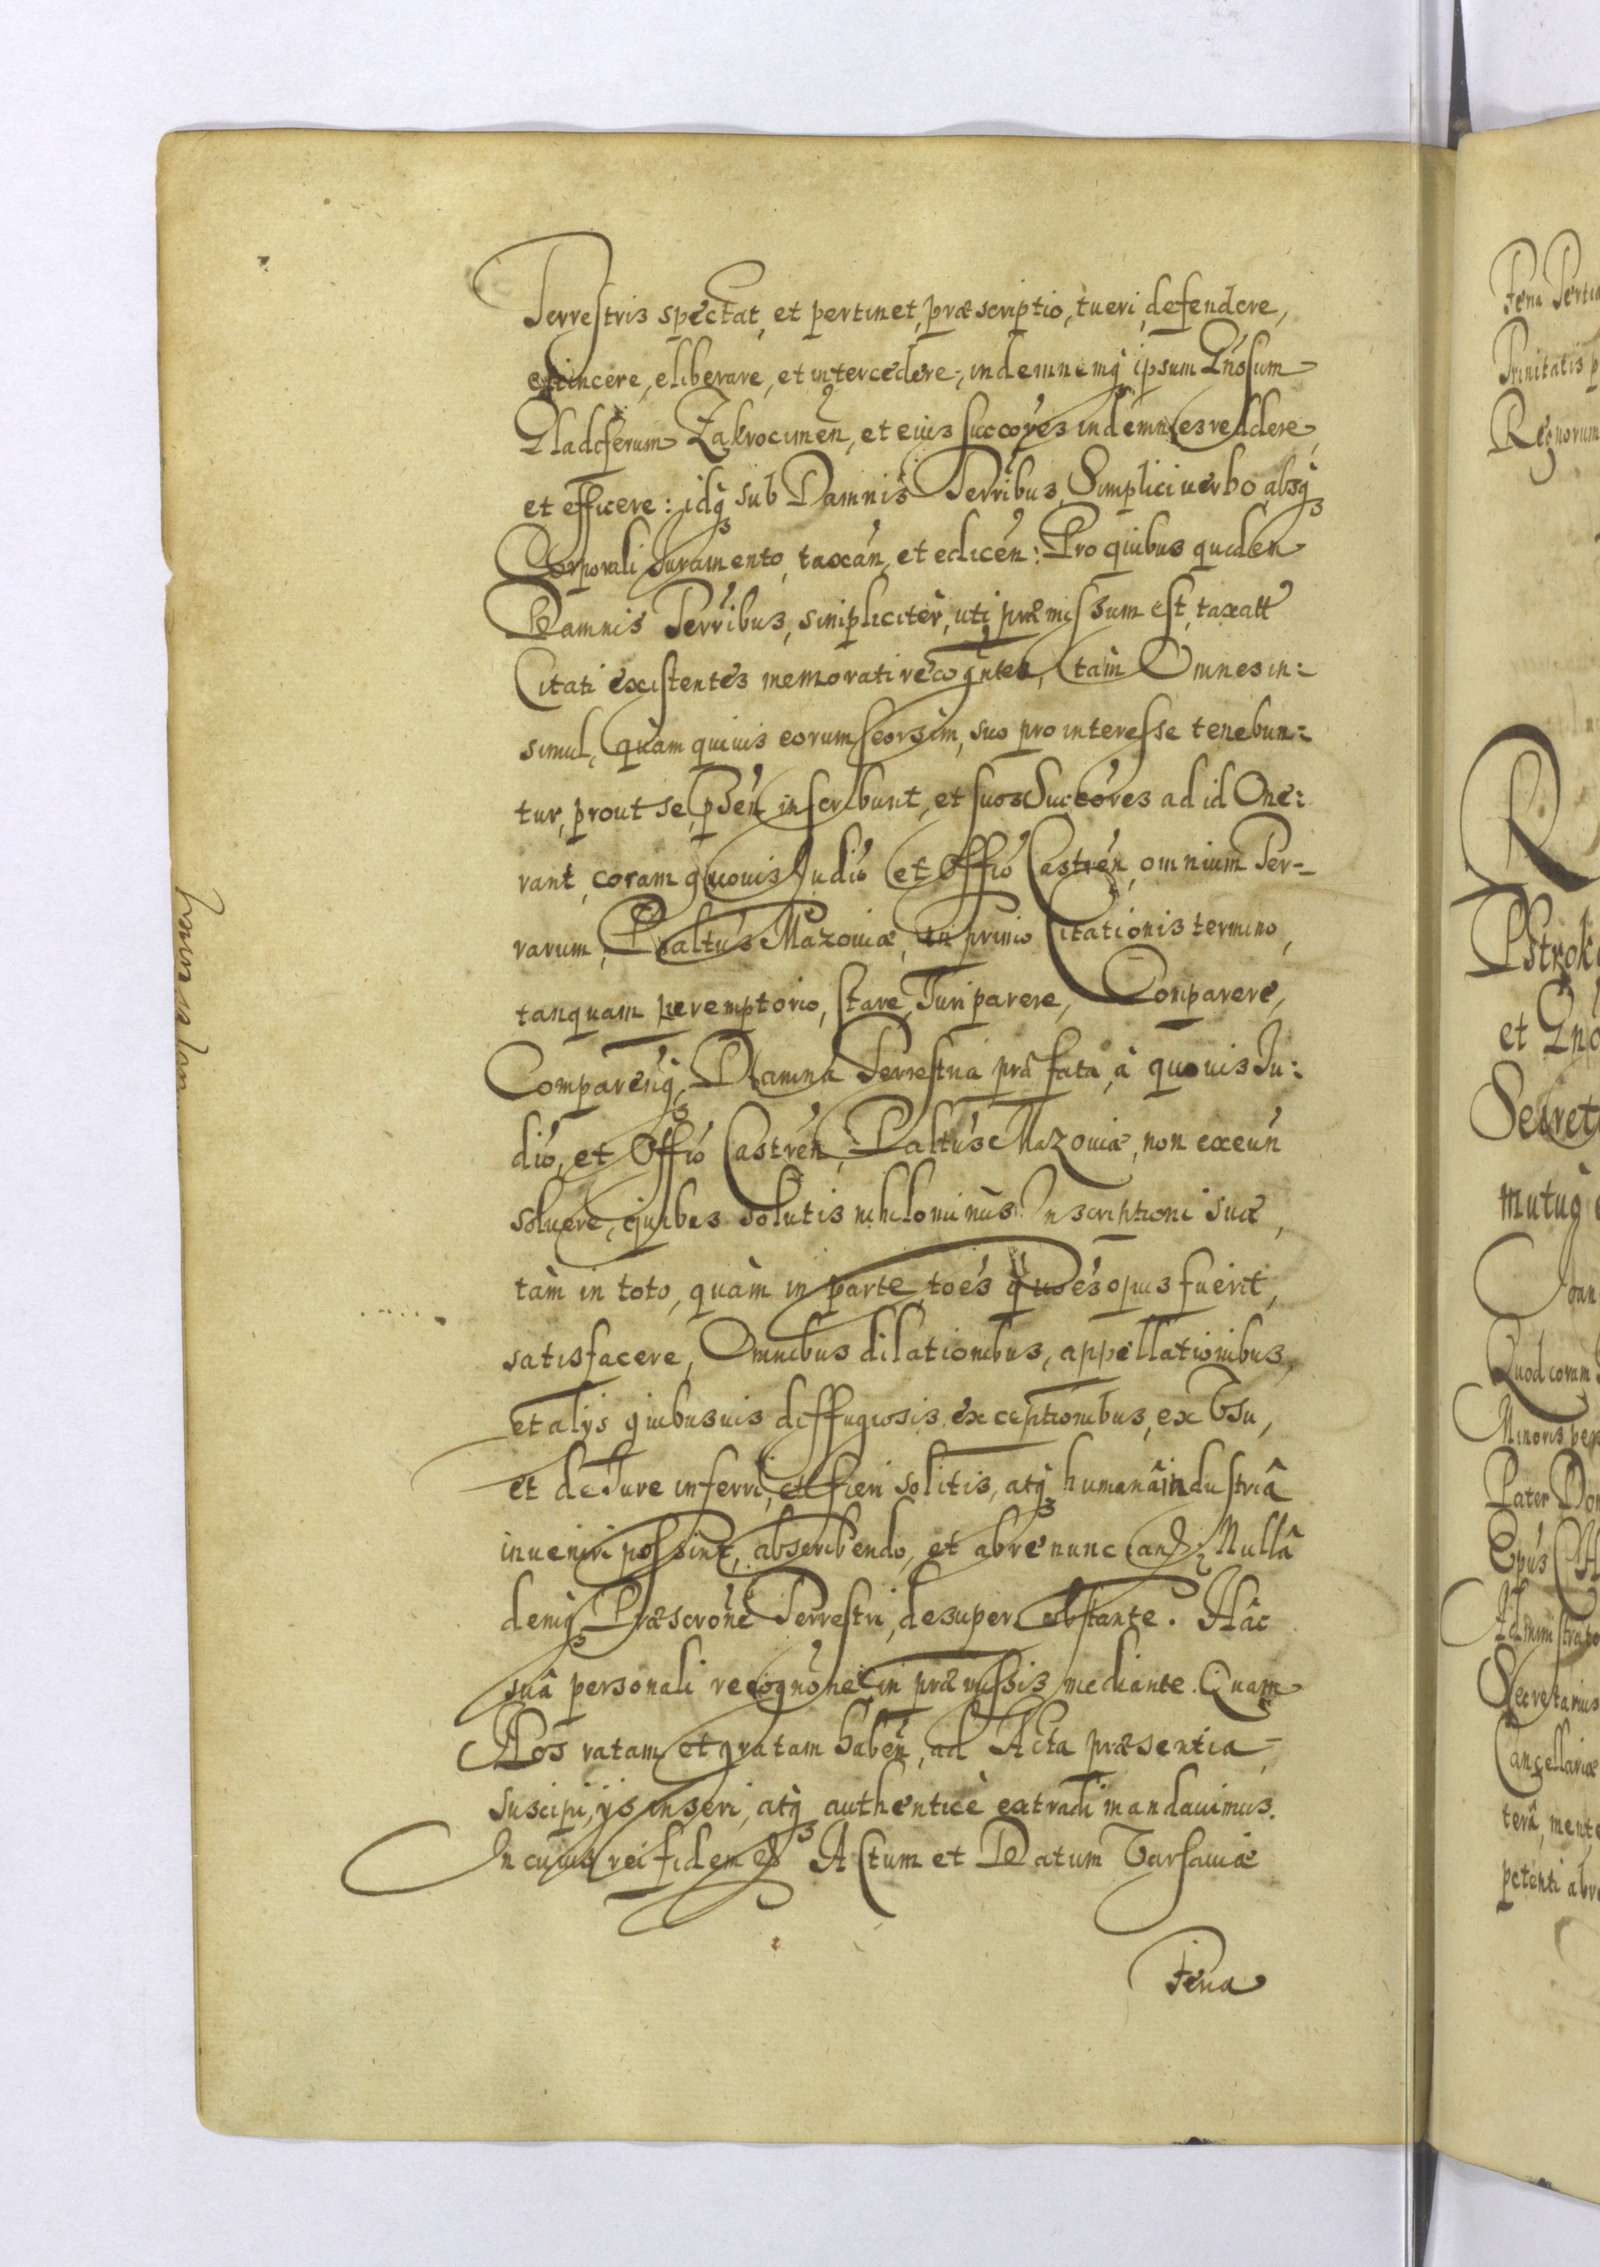 Terrestris spectat, et pertinet, præscriptio, tueri, defendere,
euincere, eliberare, et intercedere; indemnemq ipsum Gnosum
Gladiferum Zakrocimen, et eius succores indemnes reddere,
et efficere: idq sub Damnis Terribus, Simplici uerbo, absq
Corporali Juramento, taxan, et edicen: Pro quibus quidem
Damnis Terribus, simpliciter, uti præmissum est, taxatt
Citati existentes memorati recognten, tàm Omnes in:
simul, quàm quiuis eorum seorsim, suo pro interesse tenebun:
tur, prout se, pden inscribunt, et suos Succores ad id One:
rant, coram quouis Judio et Offio Castren, omnium Ter-
rarum, Paltus Mazouiæ, in primo Citationis termino,
tanquam peremptorio, stare, Juri parere, Comparere,
Comparenq, Damna Terrestria præfata, à quouis Ju:
dio, et Offio Castren, Paltus Mazouiæ, non exeun
soluere, quibus solutis nihilominus Inscriptioni suæ,
tàm in toto, quàm in parte, toes quoes opus fuerit,
satisfacere, Omnibus dilationibus, appellationibus,
et alijs quibusuis diffugiosis exceptionibus, ex Vsu,
et de Jure inferri, et fieri solitis, atq humanâ industriâ
inueniri possint, abscribendo, et abrenuncian: Nullâ
deniq Præscrone Terrestri, desuper obstante. Hâc
suâ personali recognone in præmissis mediante. Quam
Nos ratam et gratam haben, ad Acta præsentia
suscipi, ijs inseri, atq authenticè extradi mandauimus.
In cuius rei fidem &. Actum et Datum Varsauiæ
Feria